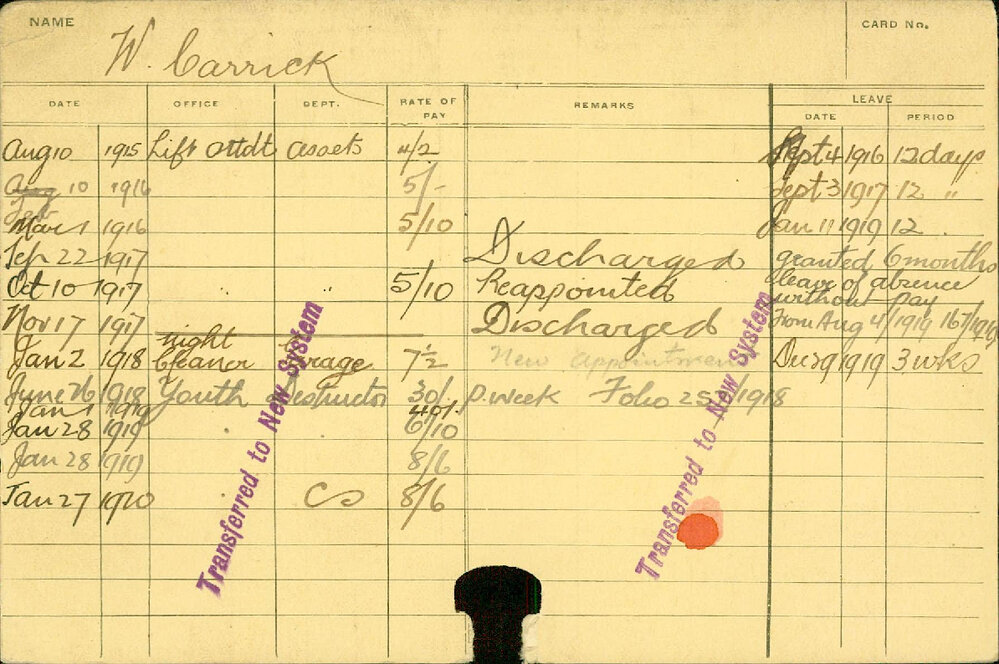 NAME W. Carrick CARD No.
DATE OFFICE DEPT. RATE OF PAY REMARKS LEAVE
DATE PERIOD
Aug 10 1915 Lift attdt assets 4/2 Sept 4 1916 12 days
Aug 10 1916 5/- Sept 3 1917 12 "
Mar 1 1916 5/10 Jan 11 1919 12
Sep 22 1917 Discharged granted 6 months
Oct 10 1917 " " 5/10 Reappointed leave of absence
without pay
Nov 17 1917 Discharged From Aug 4/1919
night
Jan 2 1918 Cleaner 7½ New appointment 1919 3 wks
June 26 1918 Youth 30/- P. week Folio 1918
Jan 1 1919
Jan 28 1919 6/10
Jan 28 1919 8/6
Jan 27 1920 8/6
Transferred to New System
Transferred to New System